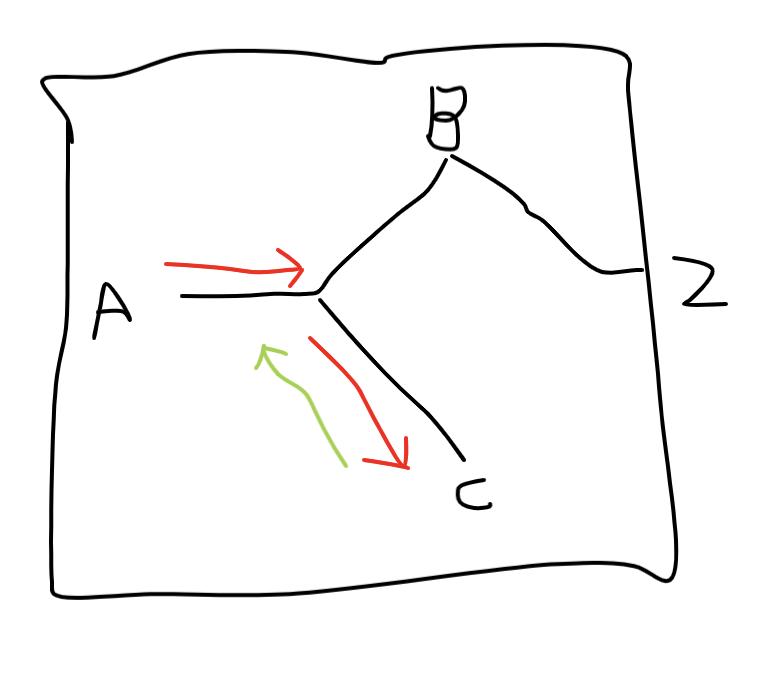 B
A
Z
C